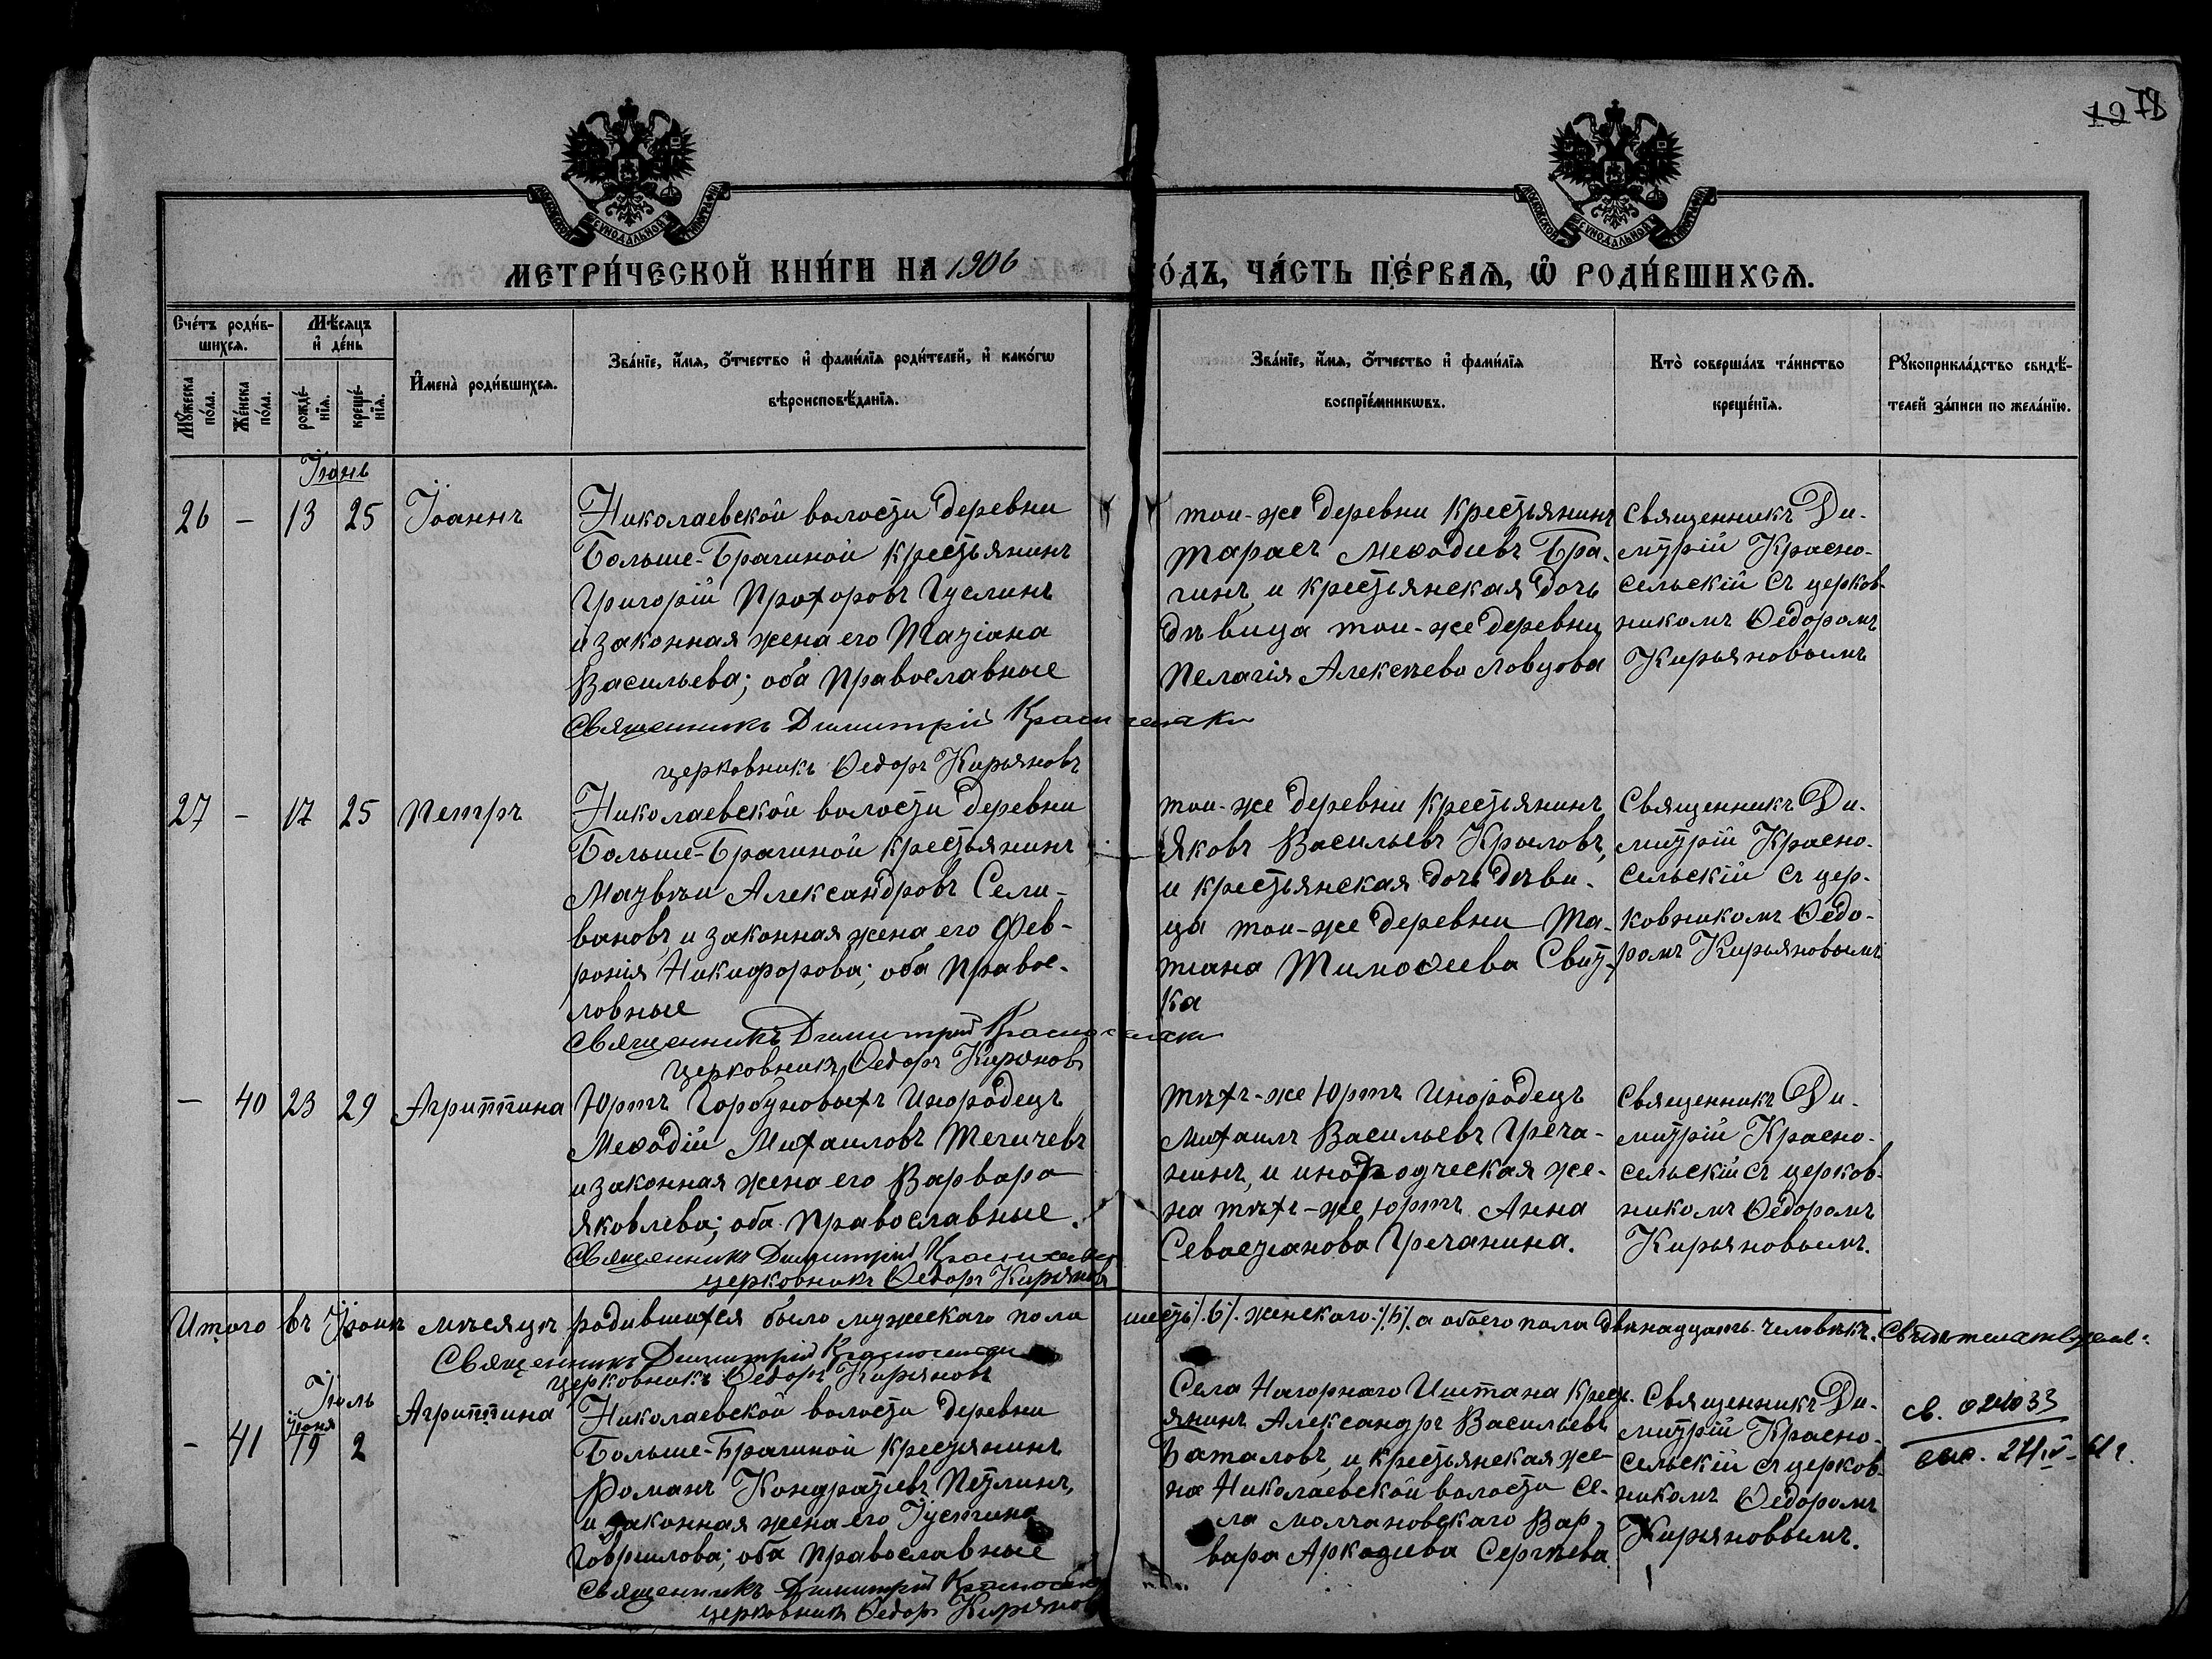 19 78
МЕТРИ́ЧЕСКОЙ КНИ́ГИ НА 1906
О́ДЪ, ЧА́СТЬ ПЕ́РВАѦ, Ѿ РОДИ́ВШИХСѦ.
Сче́тъ роди́в-
шихсѧ.
Мꙋ́жеска по́ла.
Же́нска по́ла.
Мѣ́сѧцъ
и҆ де́нь
рожде́-
нїѧ.
креще́-
нїѧ.
И҆мена̀ роди́вшихсѧ.
Зва́нїе, и҆́мѧ, ѻ҆́тчество и҆ фами́лїѧ роди́телей, и҆ како́гѡ
вѣроисповѣ́данїѧ.
Зва́нїе, и҆́мѧ, ѻ҆́тчество и҆ фами́лїѧ
воспрїе́мникѡвъ.
Кто̀ соверша́лъ та́инство
креще́нїѧ.
Рꙋкоприкла́дство свидѣ́-
телей за́писи по жела́нїю.
Іюнь
26 - 13 25 Іоаннъ
Николаевской волости деревни
Больше-Брагиной крестьянинъ
Григорій Прохоровъ Гуслинъ
и законная жена его Татіана
Васильева; оба православные
Священникъ Димитрій
церковникъ Ѳедоръ Кирьяновъ
той-же деревни крестьянинъ
Тарасъ Меѳодіевъ Бра-
гинъ, и крестьянская дочь
дѣвица той-же деревни
Пелагія Алексѣева Ловцова
Священникъ Ди-
митрій Красно-
сельскій съ церков-
никомъ Ѳедоромъ
Кирьяновымъ
27 - 17 25 Петръ
Николаевской волости деревни
Больше-Брагиной крестьянинъ
Матвѣй Александровъ Сели-
вановъ, и законная жена его Фев-
ронія Никифорова; оба правос-
ловные
Священникъ Димитрій
церковникъ Ѳедоръ Кирьяновъ
той-же деревни крестьянинъ
Яковъ Васильевъ Крыловъ,
и крестьянская дочь дѣви-
ца той-же деревни Та-
тіана Тимоѳеева Свит-
ка
Священникъ Ди-
митрій Красно-
сельскій съ цер-
ковникомъ Ѳедо-
ромъ Кирьяновымъ
- 40 23 29 Агриппина
Юртъ Горбуновыхъ инородецъ
Меѳодій Михаиловъ Тегичевъ
и законная жена его Варвара
Яковлева; оба православные.
Священникъ Димитрій
церковникъ Ѳедоръ Кирьяновъ
тѣхъ-же юртъ инородецъ
Михаилъ Васильевъ Греча-
нинъ, и инородческая же-
на тѣхъ-же юртъ Анна
Севастіанова Гречанина.
Священникъ Ди-
митрій Красно-
сельскій съ церков-
никомъ Ѳедоромъ
Кирьяновымъ.
Итого въ Іюнѣ мѣсяцѣ родившихся было мужескаго пола шесть /.6/. женскаго /.6/. а обоего пола двѣнадцать человѣкъ.
Священникъ Димитрій
церковникъ Ѳедоръ Кирьяновъ
Іюль
- 41 Іюня 19 2 Агриппина
Николаевской волости деревни
Больше-Брагиной крестьянинъ
Романъ Кондратіевъ Петлинъ,
и законная жена его Іустина
Гаврилова; оба православные
Священникъ Димитрій
церковникъ Ѳедоръ Кирьяновъ
Села Нагорнаго Иштана крест-
янинъ Александръ Васильевъ
Баталовъ, и крестьянская же-
на Николаевской волости се-
ла Молчановскаго Вар-
вара Аркадіева Сергѣева
Священникъ Ди-
митрій Красно-
сельскій съ церков-
никомъ Ѳедоромъ
Кирьяновымъ.